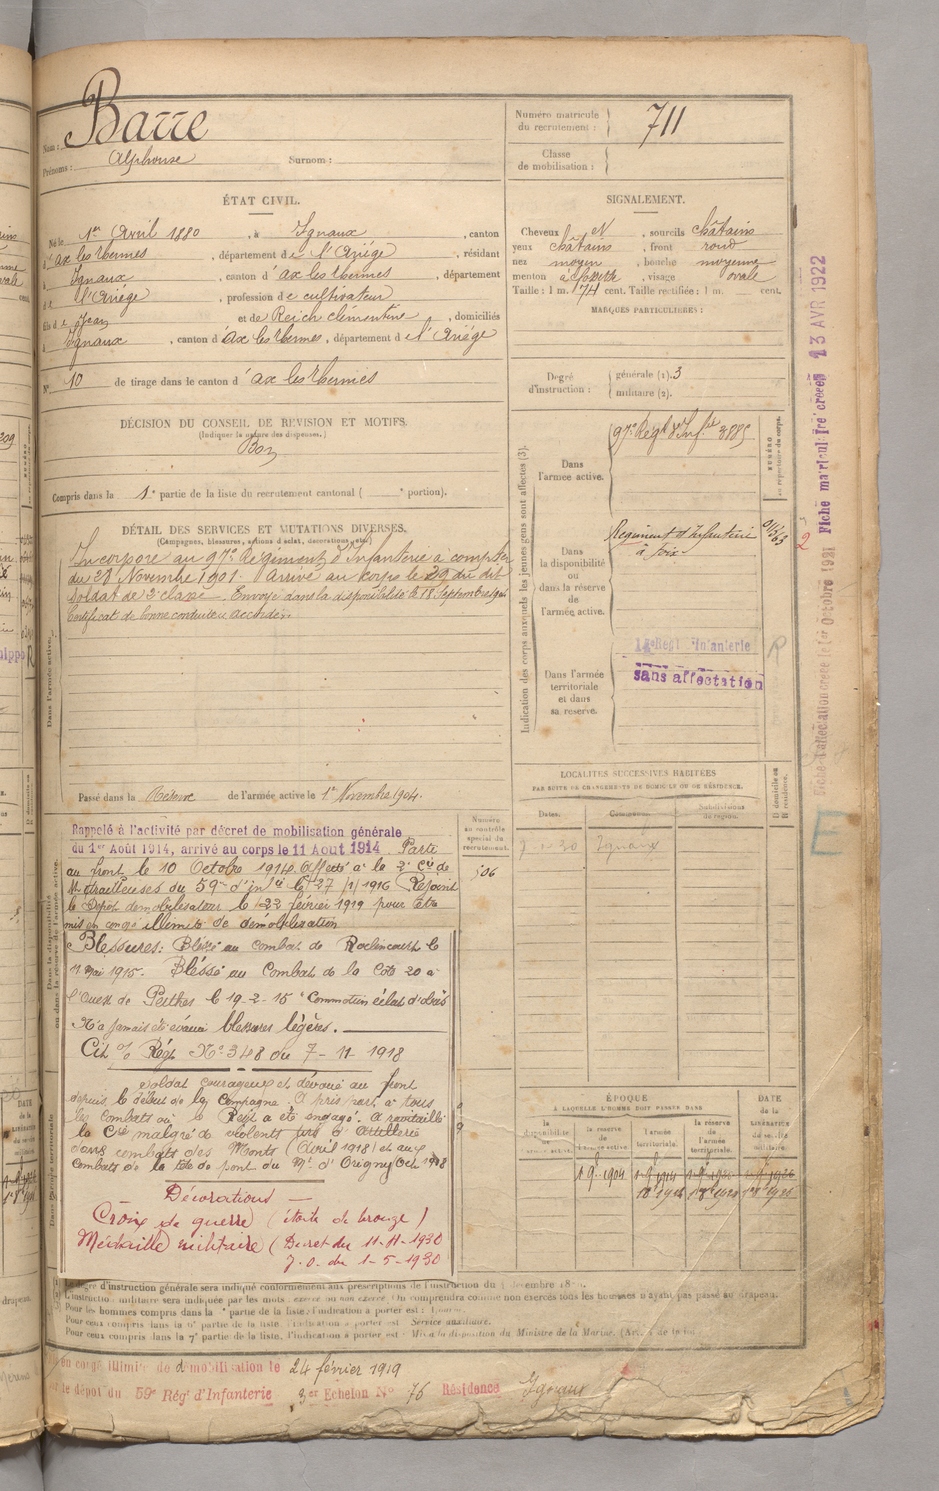 Nom : Barre
Prénoms : Alphonse Surnom :
Numéro matricule du recrutement : 711
Classe de mobilisation :
ÉTAT CIVIL.
Né le 1er Avril 1880, à Ignaux, canton
d'ax les Thermes, département de l'Ariége, résidant
à Ignaux, canton d'ax les Thermes, département
de l'Ariége, profession de cultivateur
fils de Jean et de Reich clémentine, domiciliés
à Ignaux, canton d'ax les Thermes, département de l'Ariége
N° 10 de tirage dans le canton d'ax les Thermes
SIGNALEMENT.
Cheveux et, sourcils châtains
yeux châtains, front rond
nez moyen, bouche moyenne
menton à fossette, visage ovale
Taille : 1 m. 74 cent. Taille rectifiée : 1 m. cent.
MARQUES PARTICULIÈRES :
Degré d'instruction :
générale (1). 3
militaire (2).
DÉCISION DU CONSEIL DE RÉVISION ET MOTIFS.
(Indiquer la nature des dispenses.)
Bon
Compris dans la 1e partie de la liste du recrutement cantonal ( e portion).
DÉTAIL DES SERVICES ET MUTATIONS DIVERSES.
(Campagnes, blessures, actions d'éclat, décorations, etc.)
Incorporé au 97e Régiment d'Infanterie à compter
du 28 Novembre 1901. Arrivé au corps le 29 du dit
Soldat de 2e classe. Envoyé dans la disponibilité le 18 Septembre
Certificat de bonne conduite accordé.
Dans l'armée active.
Passé dans la Réserve de l'armée active le 1er Novembre 1904.
Indication des corps auxquels les jeunes gens sont affectés (3).
NUMÉRO au répertoire du corps.
Dans l'armée active.
97e Regt d'Infie 3885
Dans la disponibilité ou dans la réserve de l'armée active.
Regiment d'Infanterie
à Foix
Dans l'armée territoriale et dans sa réserve.
Regt Infanterie
sans affectation
R
2
LOCALITÉS SUCCESSIVES HABITÉES
PAR SUITE DE CHANGEMENTS DE DOMICILE OU DE RÉSIDENCE.
Dates. Communes. Subdivisions de région. D domicile ou R résidence.
30 Ignaux
E
Numéro au contrôle spécial du recrutement.
506
Rappelé à l'activité par décret de mobilisation générale
du 1er Août 1914, arrivé au corps le 11 Août 1914 Parti
au front le 10 Octobre 1914. Affecté à la 2e Cie de
Mitrailleuses du 59e d'infie le 27 /1/ 1916 Rejoint
le Dépôt demobilisateur le 22 février 1919 pour être
mis en congé illimité de démobilisation
Blessures : Blessé au combat de Roclincourt le
11 Mai 1915. Bléssé au Combat de la Côte 20 à
l'Ouest de Perthes le 19-2-15 "Commotion éclat d'obus
N'a jamais été évacué blessures légères.
Cit. o/o Régt N° 348 du 7-11-1918
Soldat courageux et dévoué au front
depuis le début de la Campagne. A pris part à tous
les combats où le Régt a été engagé. A ravitaillé
la Cie malgré de violents tirs d'artillerie
dans combats des Monts (Avril 1918) et aux
Combats de la tête de pont du Mt d'Origny (Oct 1918
Décorations
Croix de guerre (étoile de bronze)
Médaille militaire (Décret du 11-4-1930
J.O. du 1-5-1930
ÉPOQUE
À LAQUELLE L'HOMME DOIT PASSER DANS
la disponibilité de l'armée active. la réserve de l'armée active. l'armée territoriale. la réserve de l'armée territoriale.
DATE de la LIBÉRATION du service militaire.
1 9 1904
Le degré d'instruction générale sera indiqué conformément aux prescriptions de l'instruction du décembre
L'instruction militaire sera indiquée par les mots : exercé ou non exercé. On comprendra comme non exercés tous les hommes n'ayant pas passé au drapeau.
Pour les hommes compris dans la e partie de la liste, l'indication à porter est :
Pour ceux compris dans la 6e partie de la liste, l'indication à porter est Service auxiliaire.
Pour ceux compris dans la 7e partie de la liste, l'indication à porter est Mis à la disposition du Ministre de la Marine.
en congé illimité de démobilisation le 24 février 1919
le dépôt du 59e Régt d'Infanterie 3er Echelon N° 76 Résidence Ignaux
Fiche matriculaire créée 13 AVR 1922
Fiche d'affectation créée le 1er Octobre 1921